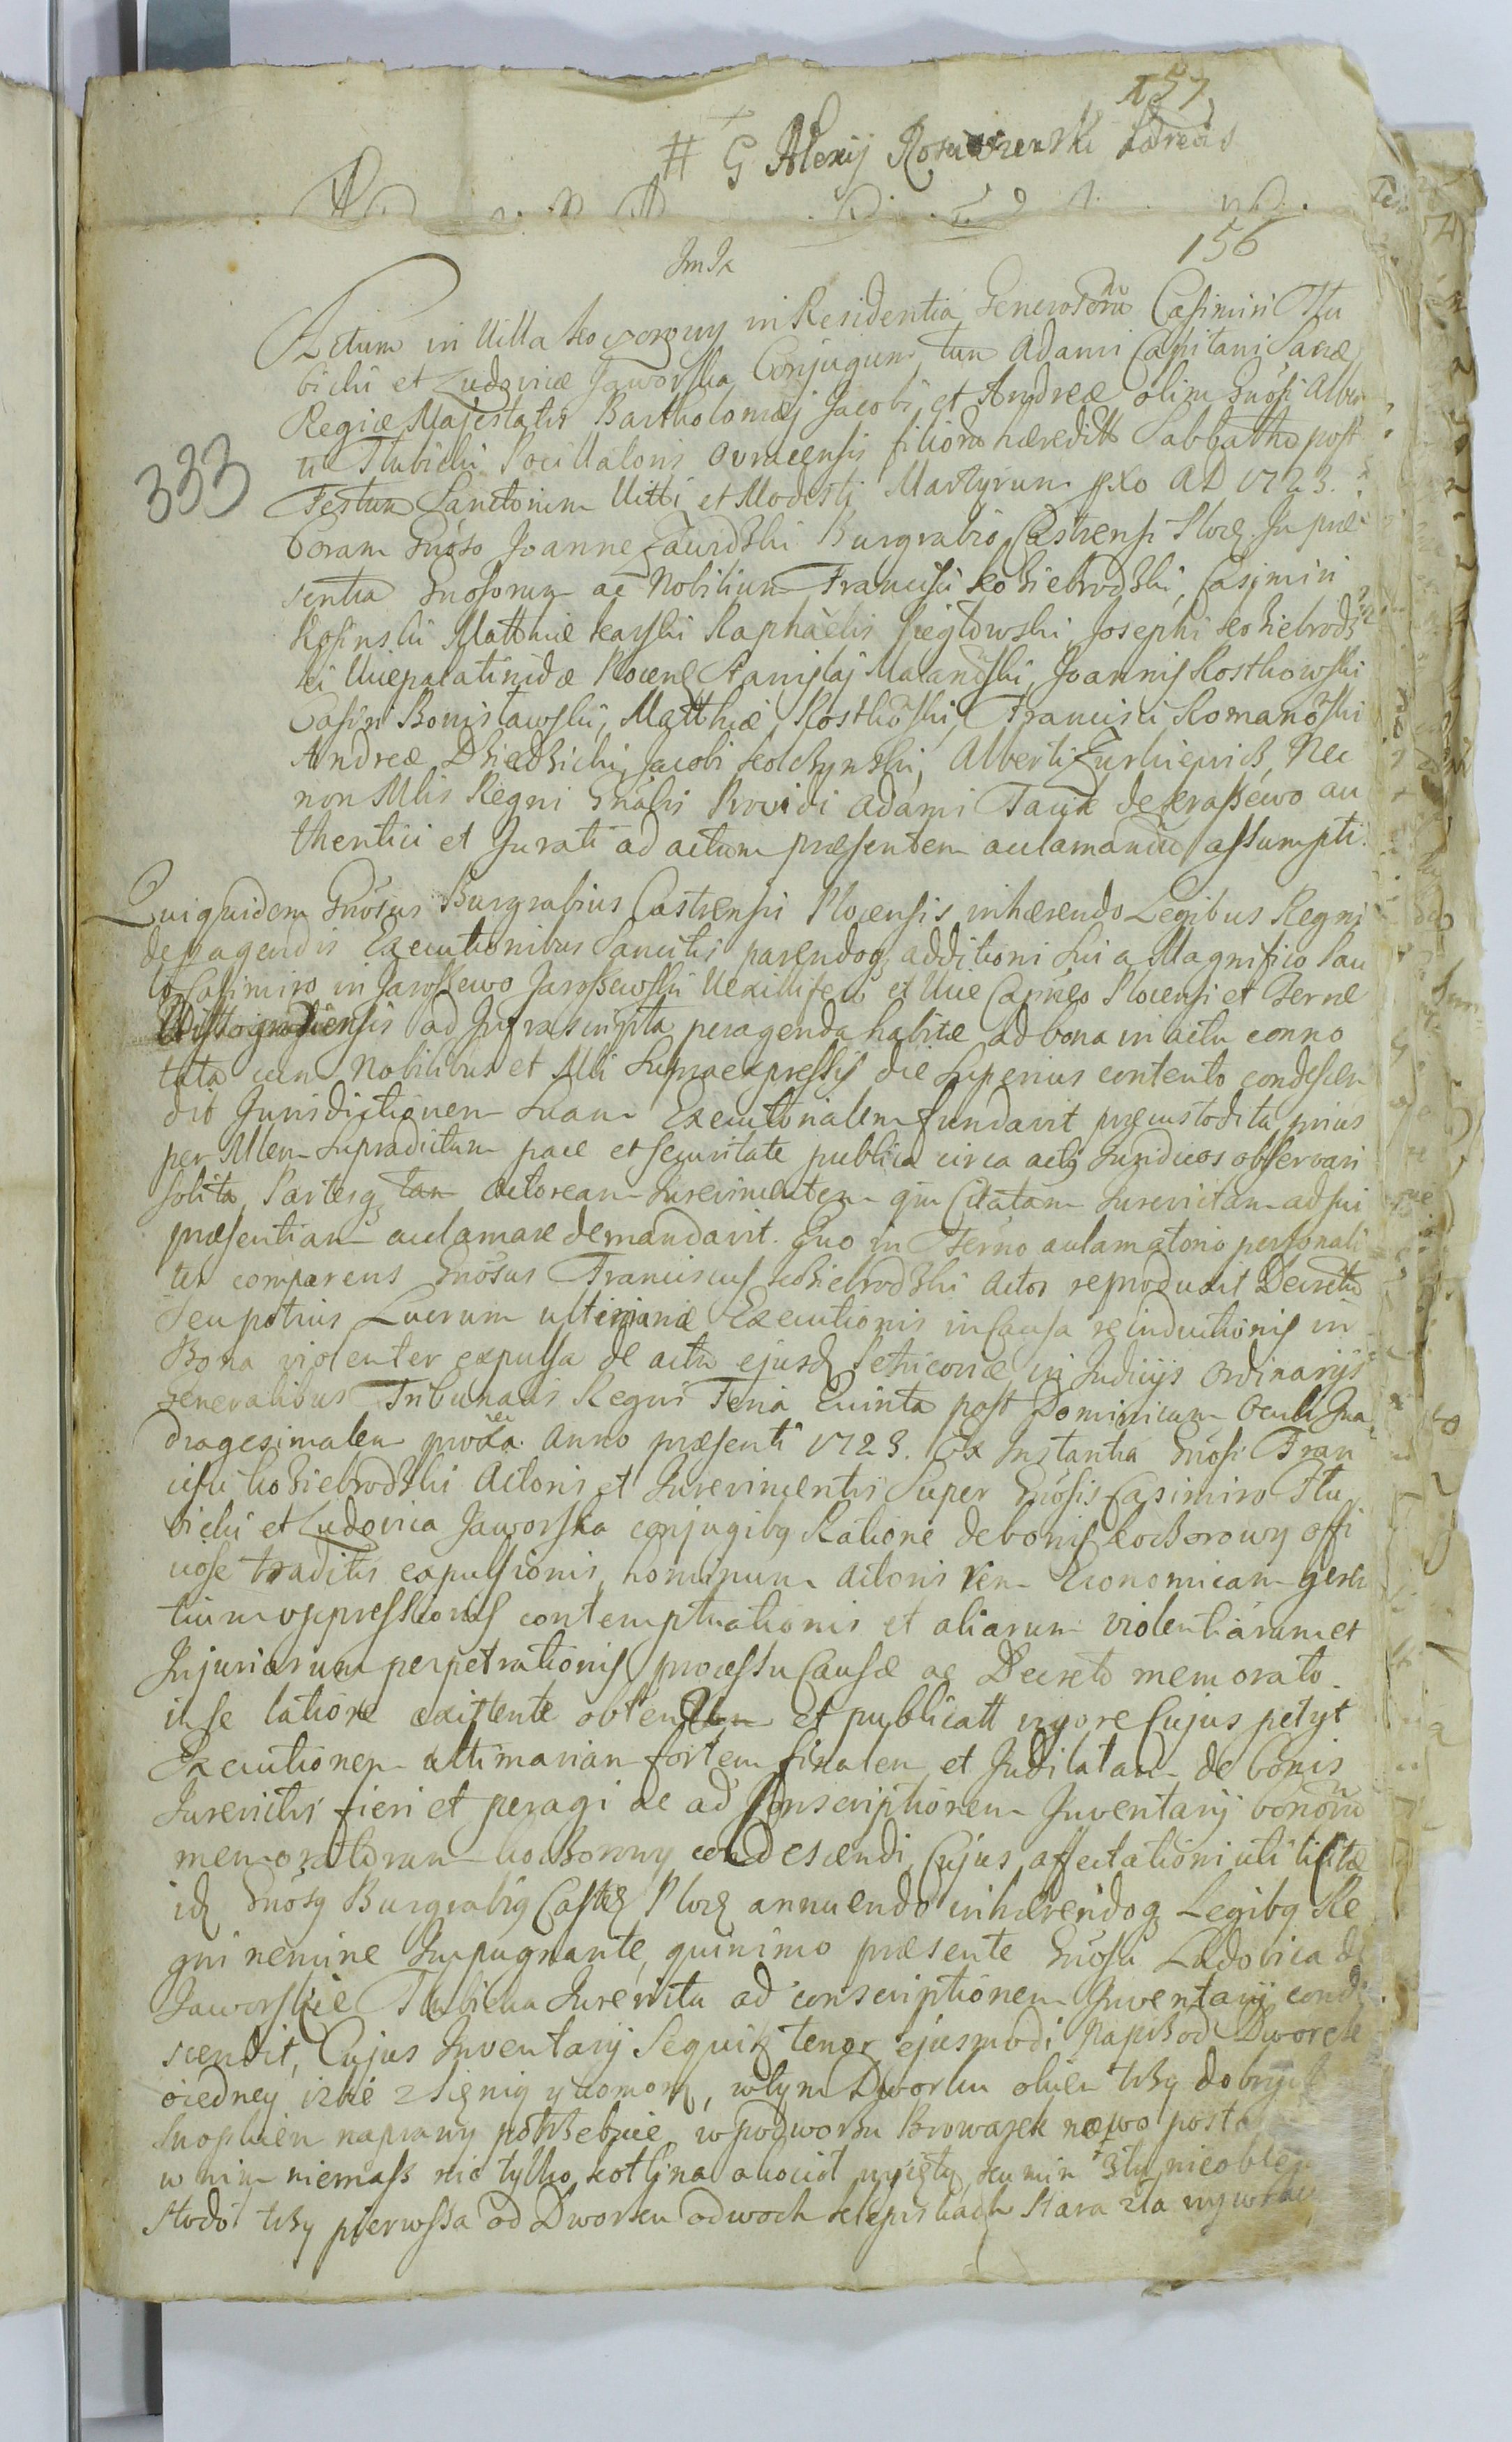 157
# G Alexij
156
Actum in Villa Koczorowy in Residentia Generosorū Casimiri Tłu
bicki et Ludovicæ Jaworska Conjugum tum Adami Capitani Sacræ
Regiæ Majestatis Bartholomæj Jacobi et Andreæ olim Gnōsi Alber
ti Tłubicki Pocillatoris Filiorū hæreditt Sabbatho post
Festum Sanctorum Vitti et Modesti Martyrum pxo AD 1723.
333
Coram Gnōso Joanne Zawidzki Burgrabio Castrensi Ploc̃. In præ
sentia Gnōsorum ac Nobilium Francisci Koziebrodzki, Casimiri
Kosinski Matthiæ Karski Raphaelis Josephi Koziebrodz
ki Vicepalatinidæ Plocens̃ Stanislaj Joannis Rostkowski
Casīri Bonisławski, Matthiæ Rostkōski, Francisci Romanōski
Andreæ Dziedzicki, Jacobi Kolczynski, Alberti Nec
non Mlis Regni Gnālis Providi Adami de Kraszewo au
thentici et Jurati ad actum præsentem acclamandū assumpti.
Qui quidem Gnōsus Burgrabius Castrensis Plocensis inhærendo Legibus Regni
de peragendis Executionibus Sancitis parendoq̃ additioni Sui a Magnifico Pau
lo Casimiro in Jaroszewo Jaroszewski Vexillifero et Vice Capnēo Plocensi et Terræ
ad Infrascripta peragenda habitæ ad bona in actu conno
tata cum Nobilibus et Mli Supraexpressis die Superius contento condescen
dit Jurisdictionem Suam Executorialem fundavit præcustodita prius
per Mlem Supradictum pace et securitate publica circa actq̃ Juridicos observari
solita, Partesq̃ tam Actoream Jurevincentem qm̃ Citatam Jurevictam ad sui
præsentiam acclamare demandavit. Quo in Termō acclamatorio personali
ter comparens Gnōsus Franciscus Koziebrodzki Actor reproduxit Decretū
Seu potius Lucrum ultimariæ Executionis in Causa reinductionis in
Bona violenter expulsa de actu ejusd̃ in Judicijs Ordinarijs
Generalibus Tribunalis Regni Feria Quinta post Dominicam Oculi Qua
dragesimalem proxa Anno præsenti 1723. Ex Instantia Gnōsi Fran
cisci Koziebrodzki Actoris et Jurevincentis Super Gnōsis Casimiro Tłu
bicki et Ludovica Jaworska conjugibq̃ Ratione de bonis Koczorowy offi
ciose traditis expulsionis, hominum Actoris rem Economicam geren
tium oppressionis contemptuationis et aliarum violentiarum et
Injuriarum perpetrationis processu Causæ ac Decreto memorato
in se latiore existente obtentum et publicatt vigore Cujus petyt
Executionem ultimariam fortem finalem et Judilatam de bonis
Jurevictis fieri et peragi ac ad Conscriptionem Inventarij bonorū
memoratorum Koczorowy condescendi, Cujus affectationi uti licitæ
id̃ Gnōsq̃ Burgrabiq̃ Castr̃ Ploc̃ annuendo inhærendoq̃ Legibq̃ Re
gni nemine Impugnante, quinimo præsente Gnōsa Ludovica de
Jaworskie Tłubicka Jurevicta ad conscriptionem Inventarij conde
scendit, Cujus Inventarij Sequitr̃ tenor ejusmodi Naprzod Dworek
o iedney izbie z Sienią y komorą, w tym Dworku okien trzy dobrych
Snopkien naprawy potrzebuie, w podworzu Browarek nowo posta
w nim niemasz nic tylko kotlina a kocioł wyięty, komin zły nieoblep
Stodoł trzy pierwsza od Dworku o dwoch klepiskach Stara zła